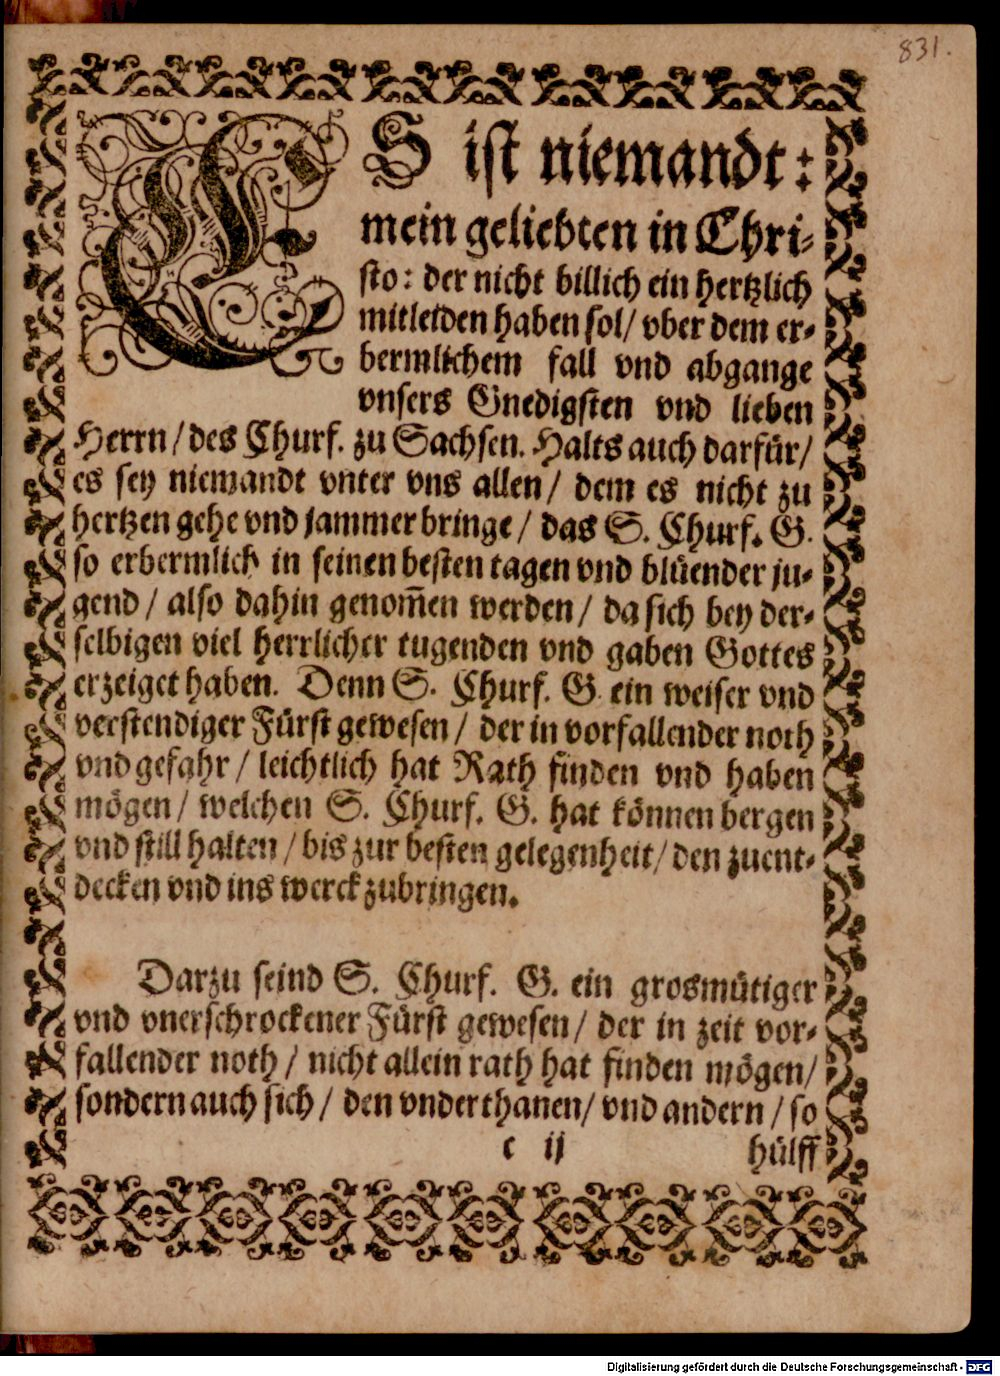 831.
ES ist niemandt:
mein geliebten in Chri-
sto: der nicht billich ein hertzlich
mitleiden haben sol/ vber dem er-
bermlichem fall vnd abgange
vnsers Gnedigsten vnd lieben
Herrn/ des Churf. zu Sachsen. Halts auch darfür/
es sey niemandt vnter vns allen/ dem es nicht zu
hertzen gehe vnd jammer bringe/ das S. Churf. G.
so erbermlich in seinen besten tagen vnd blüender ju-
gend/ also dahin genom̄en werden/ da sich bey der-
selbigen viel herrlicher tugenden vnd gaben Gottes
erzeiget haben. Denn S. Churf. G. ein weiser vnd
verstendiger Fürst gewesen/ der in vorfallender noth
vnd gefahr/ leichtlich hat Rath finden vnd haben
mögen/ welchen S. Churf. G. hat können bergen
vnd still halten/ bis zur besten gelegenheit/ den zuent-
decken vnd ins werck zubringen.
Darzu seind S. Churf. G. ein grosmütiger
vnd vnerschrockener Fürst gewesen/ der in zeit vor-
fallender noth/ nicht allein rath hat finden mögen/
sondern auch sich/ den vnderthanen/ vnd andern/ so
c ij hülff
Digitalisierung gefördert durch die Deutsche Forschungsgemeinschaft - DFG